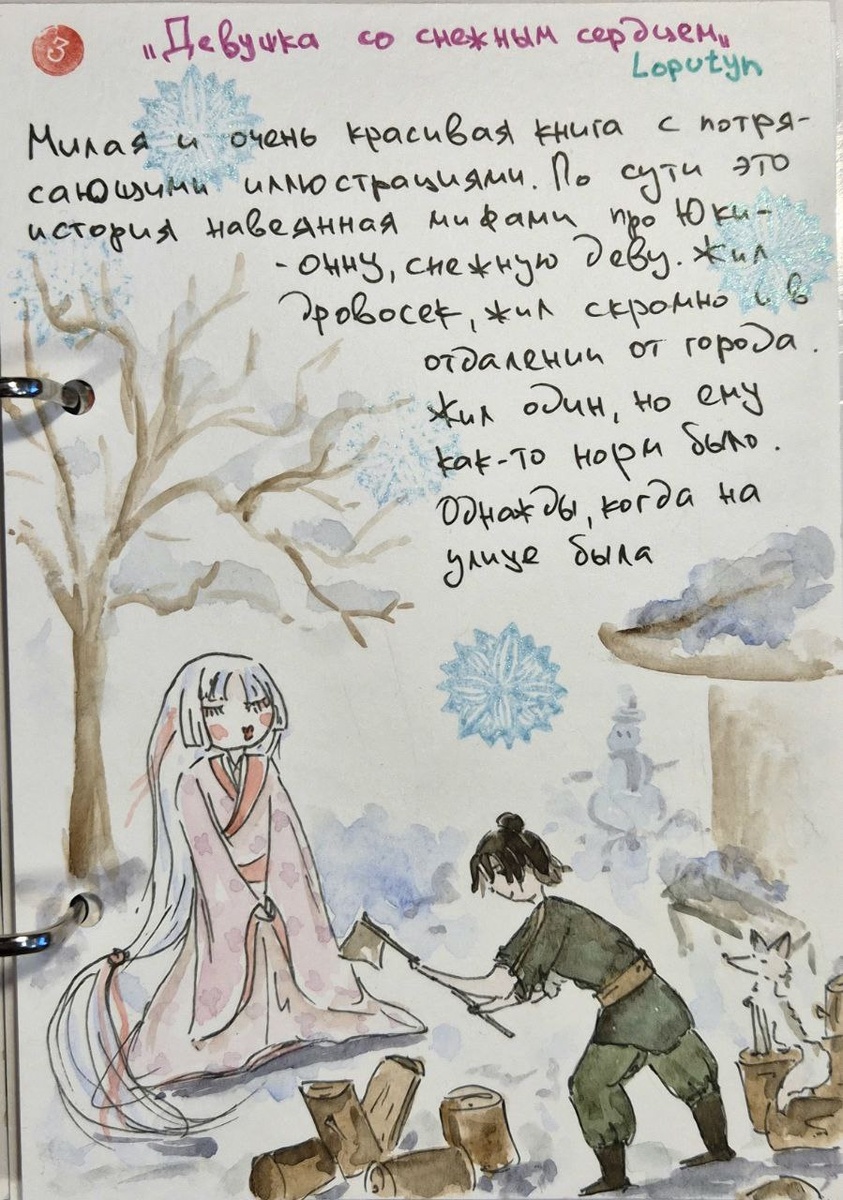 3
„Девушка со снежным сердцем„
Loputyn
Милая и очень красивая книга с потря-
сающими иллюстрациями. По сути это
история навеянная мифами про Юки-
-онну, снежную деву. Жил
дровосек, жил скромно и в
отдалении от города.
Жил один, но ему
как-то норм было.
Однажды, когда на
улице была